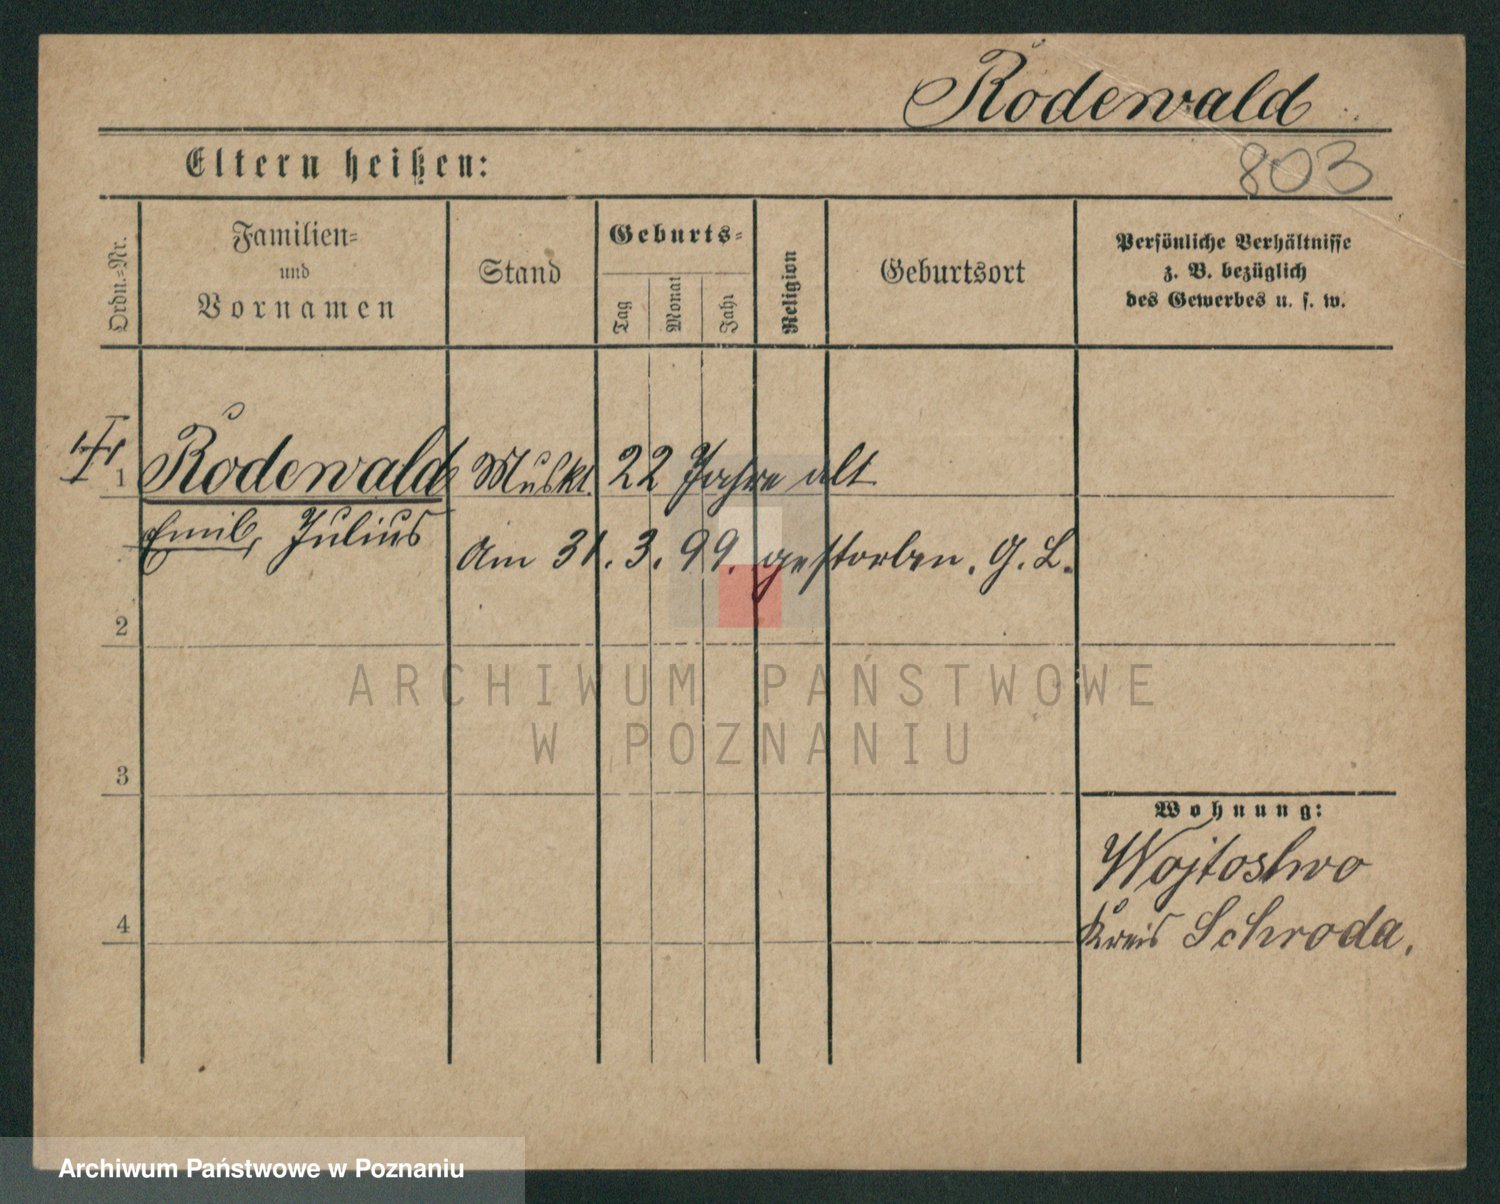 Rodewald
803
Eltern heißen:
Ordn.-Nr.
Familien-
und
Vornamen
Stand
Geburts-
Tag
Monat
Jahr
Religion
Geburtsort
Persönliche Verhältnisse
z. B. bezüglich
des Gewerbes u. s. w.
1 Rodewald Muskt. 22 Jahre alt
Emil, Julius
Am 31. 3. 99. gestorben. G. L.
2
ARCHIWUM PAŃSTWOWE
W POZNANIU
3
Wohnung:
Wojtostwo
4
Kreis Schroda.
Archiwum Państwowe w Poznaniu